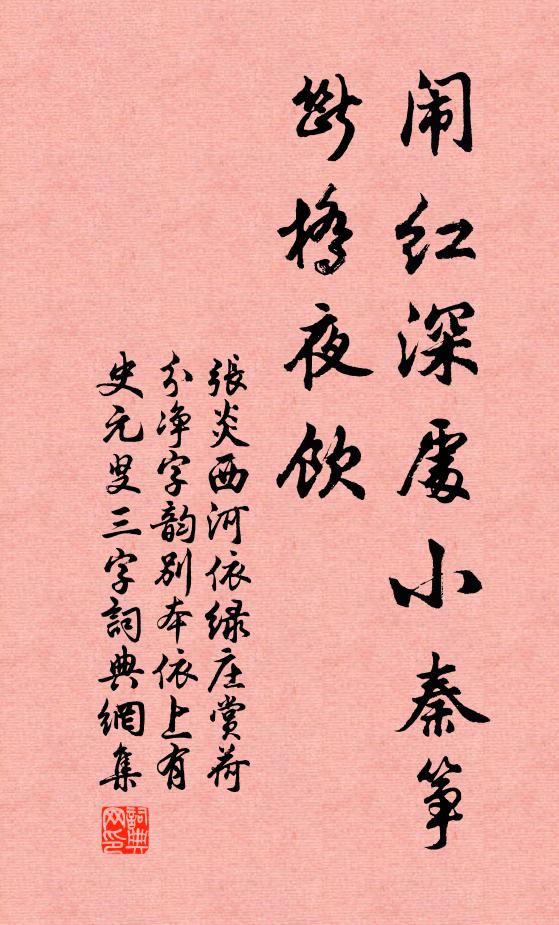 闹红深處小秦筝
斷橋夜飲
張炎西河依绿庄賞荷
分净字韵别本依上有
史元叟三字詞典網集
詞典网印